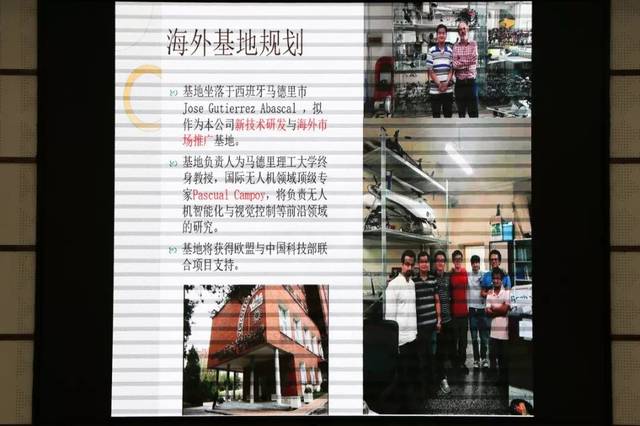 海外基地规划
基地坐落于西班牙马德里市
Jose Gutierrez Abascal，拟
作为本公司新技术研发与海外市
场推广基地。
基地负责人为马德里理工大学终
身教授，国际无人机领域顶级专
家Pascual Campoy，将负责无人
机智能化与视觉控制等前沿领域
的研究。
基地将获得欧盟与中国科技部联
合项目支持。